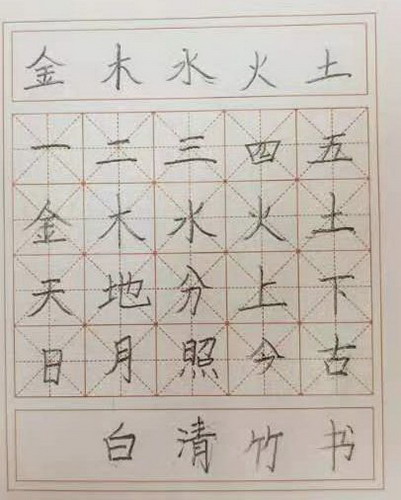 金木水火土
一二三四五
金木水火土
天地分上下
日月照今古
白清竹书